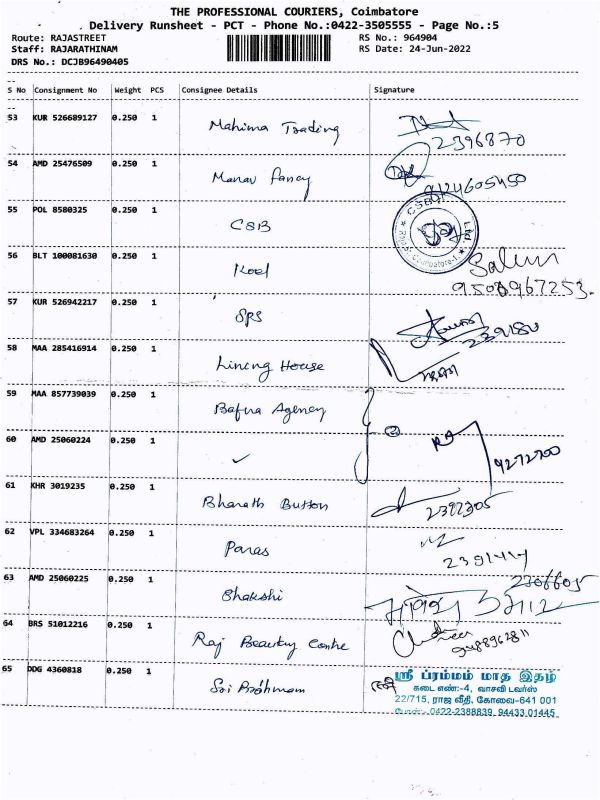 THE PROFESSIONAL COURIERS, Coimbatore
Delivery Runsheet - PCT - Phone No.:0422-3505555 - Page No.:5
Route: RAJASTREET
RS No.: 964904
Staff: RAJARATHINAM
RS Date: 24-Jun-2022
DRS No.: DCJB96490405
S No Consignment No Weight PCS Consignee Details Signature
53 KUR 526689127 0.250 1 Mahima Trading
2396870
54 AMD 25476509 0.250 1 Manav Fancy
55 POL 8580325 0.250 1 CSB
56 BLT 100081630 0.250 1 Koel
57 KUR 526942217 0.250 1 SPS
58 MAA 285416914 0.250 1 Lining House
59 MAA 857739039 0.250 1 Bafna Agency
60 AMD 25060224 0.250 1 ✓
4272700
61 KHR 3019235 0.250 1 Bharath Button
2392305
62 VPL 334683264 0.250 1 Paras
63 AMD 25060225 0.250 1 Bhakshi
64 BRS 51012216 0.250 1 Raj Beauty Centre
65 DDG 4360818 0.250 1 Sri Brahmam
ஸ்ரீ ப்ரம்மம் மாத இதழ்
கடை எண்:-4, வாசவி டவர்ஸ்
22/715, ராஜ வீதி, கோவை-641 001
போன்:-0422-2388839, 94433 01445